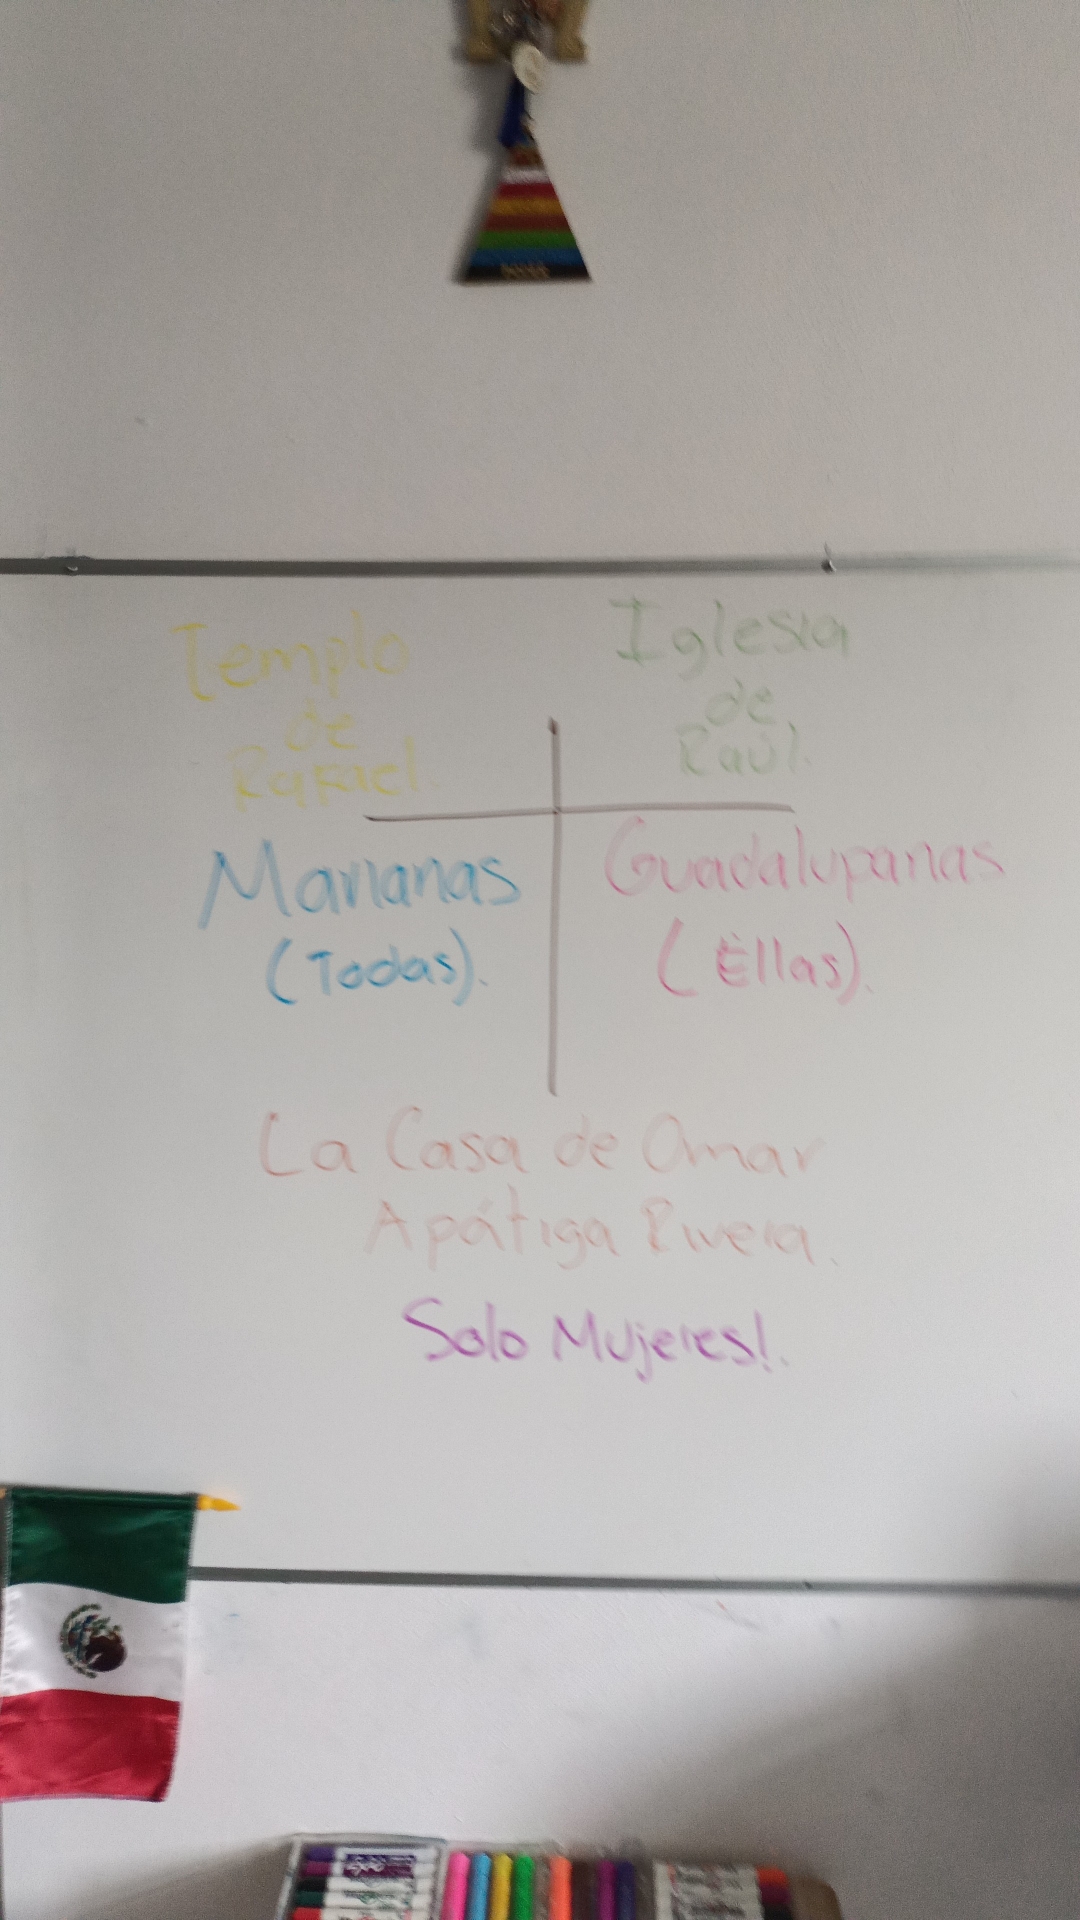 Templo
de
Rafael.
Iglesia
de
Raúl.
Marianas
(Todas).
Guadalupanas
(Ellas).
La Casa de Omar
Apátiga Rivera.
Solo Mujeres!.